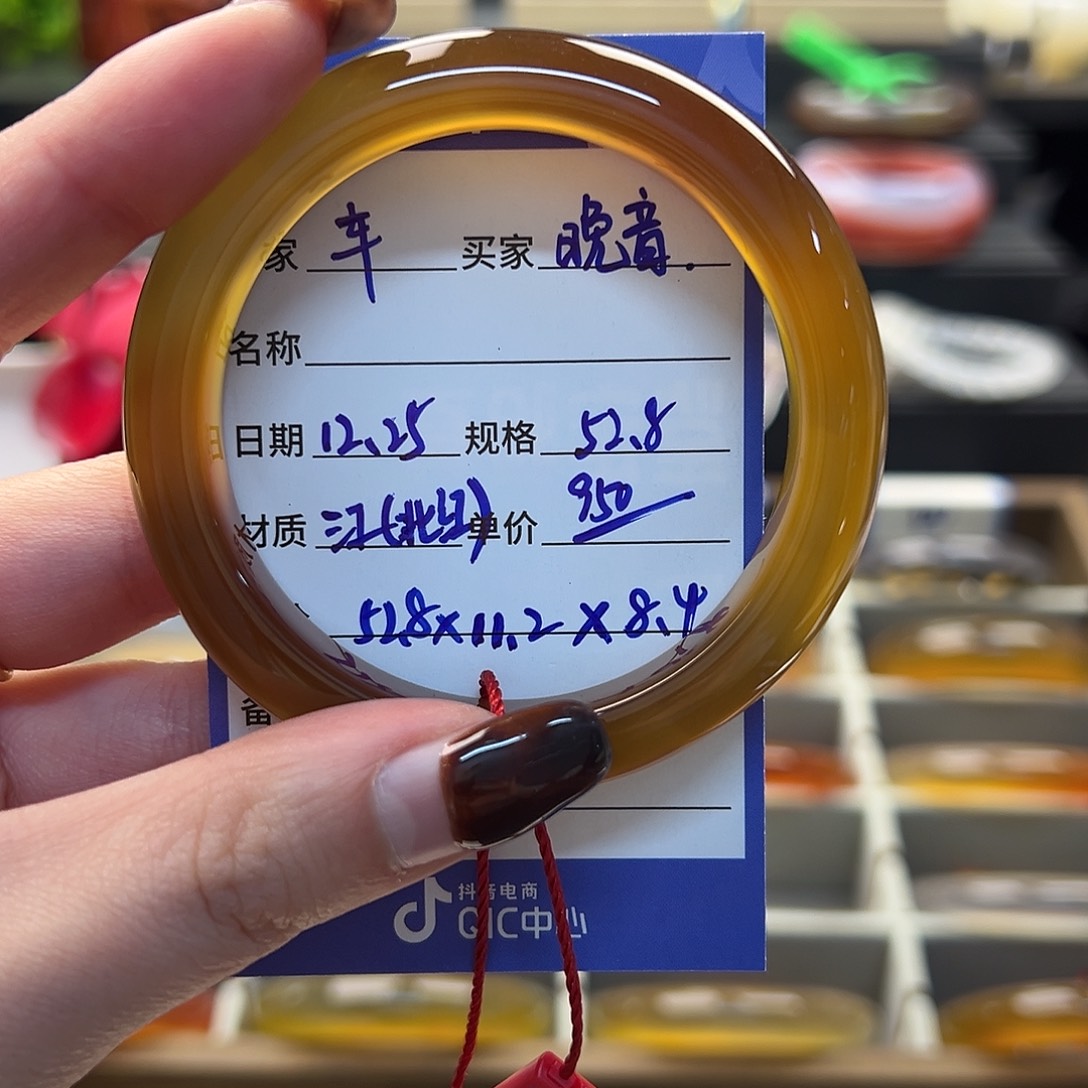 家 车 买家 晚音.
名称
日期 12.25 规格 52.8
材质 江(北红) 单价 950
52.8×11.2×8.4
备
抖音电商
QIC中心